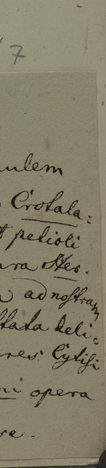 7
aulem
Crotala=
petioli
ura Hes.
ad nostram
tata deli=
res. Cytisi
ni opera
re.